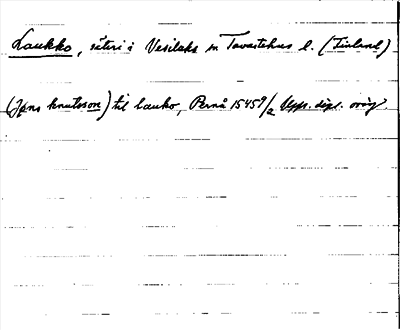 Laukko, säteri i Vesilaks sn Tavastehus l. (Finland)
(Jöns Knutsson) til lauko, Pernå 1545 9/2 Upps. dipl. orig.